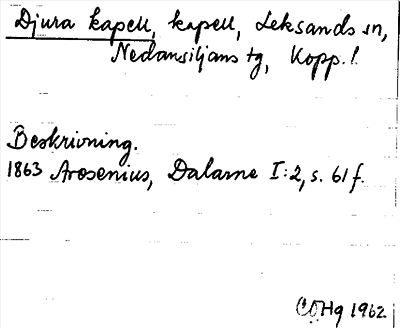 Djura kapell, kapell, Leksands sn,
Nedansiljans tg, Kopp. l.
Beskrivning.
1863 Arosenius, Dalarne I:2, s. 61 f.
COHg 1962